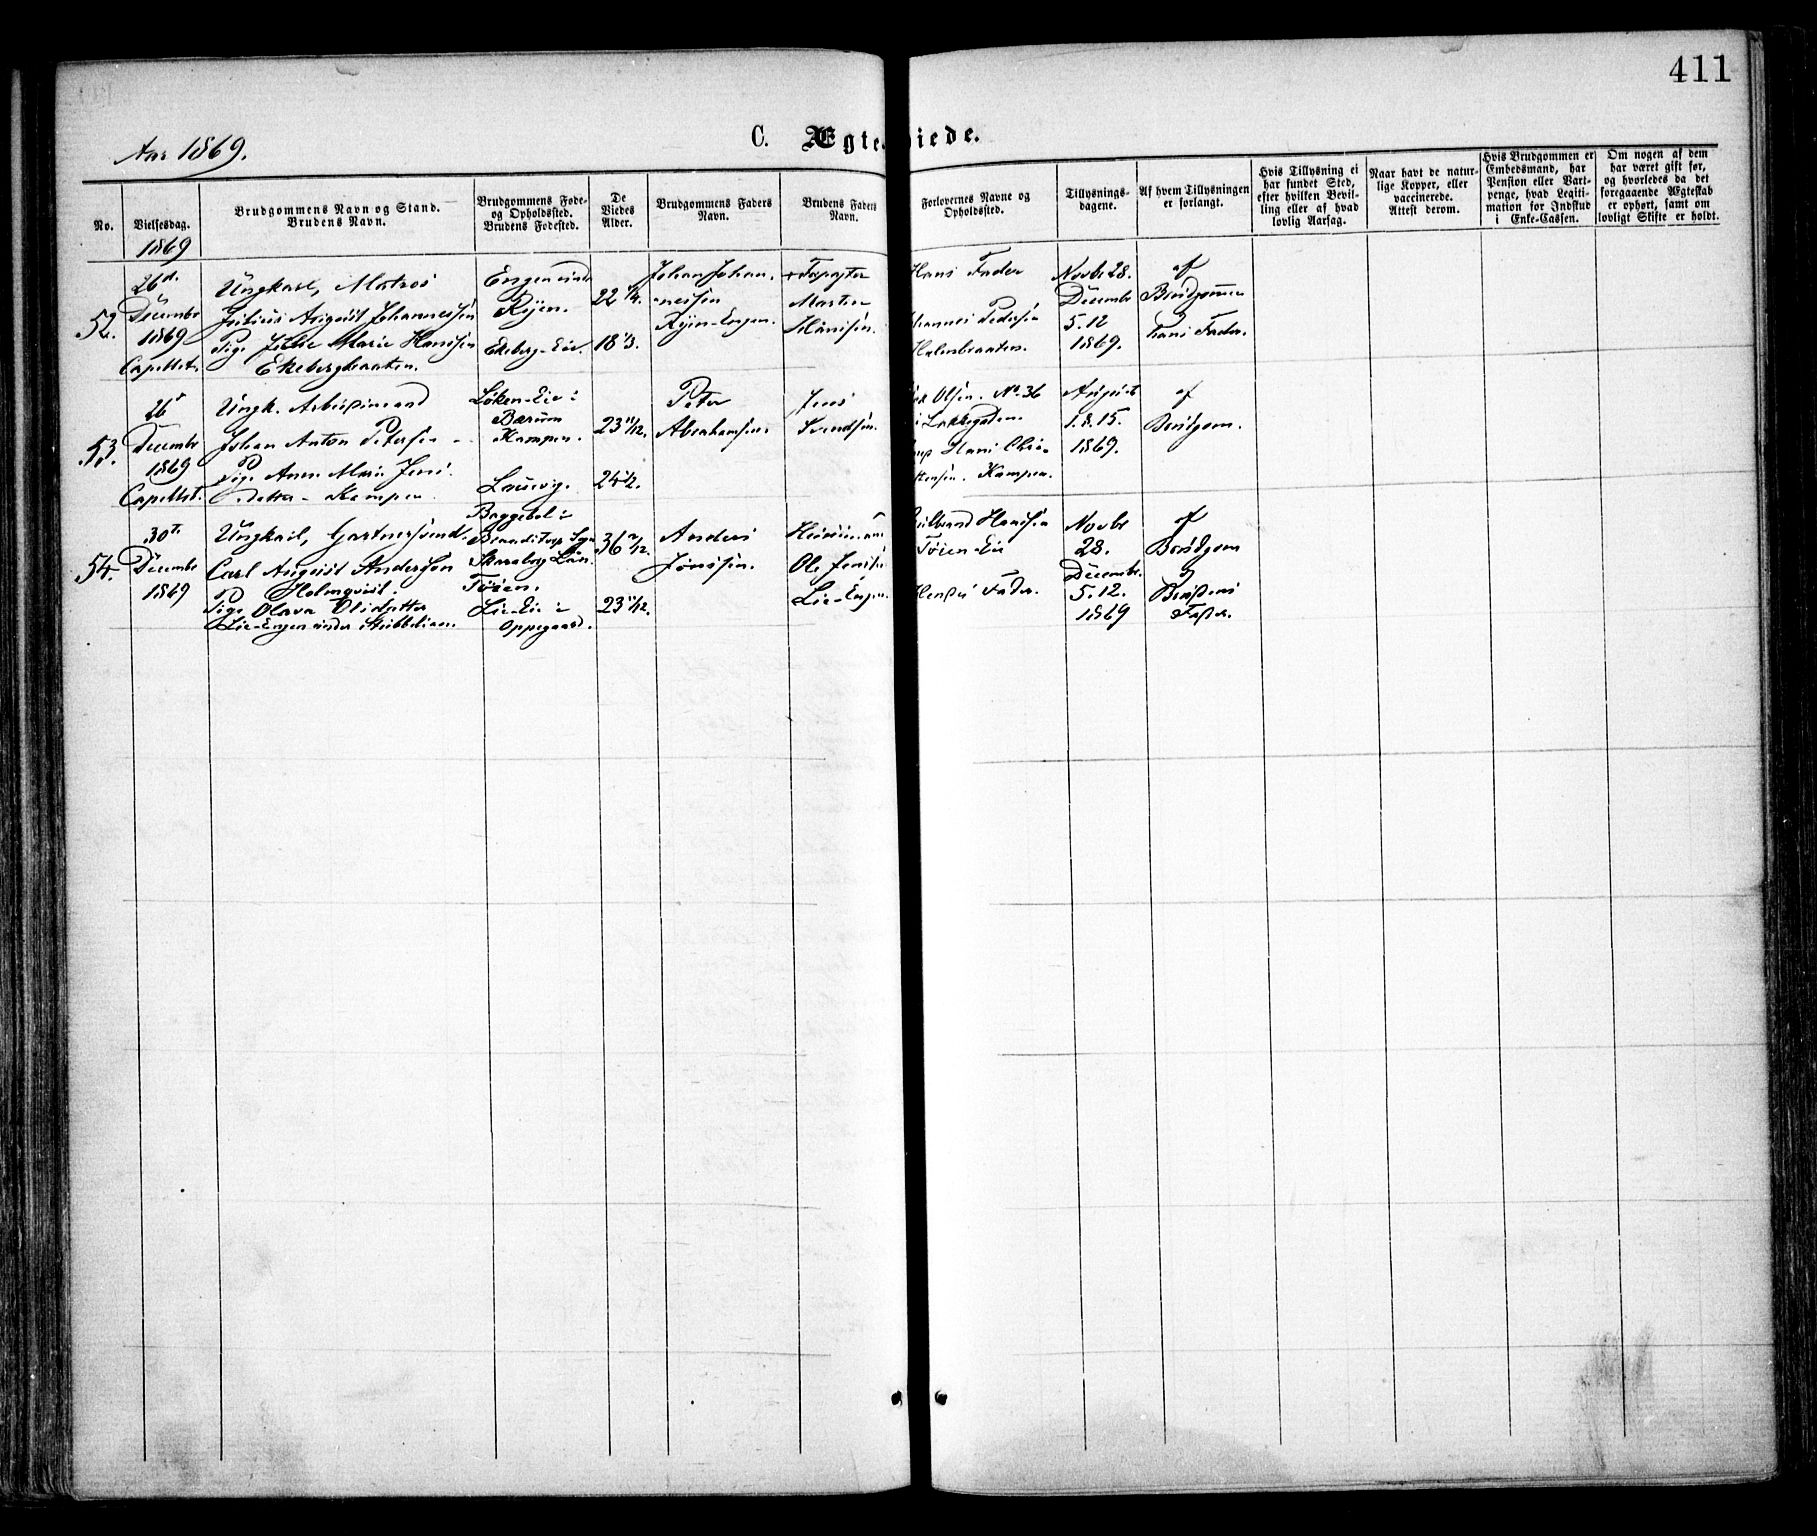 411
Aar 1869.
C. Ægteviede.
No.
Vielsesdag.
Brudgommens Navn og Stand.
Brudens Navn.
Brudgommens Føde-
og Opholdssted.
Brudens Fødested.
De
Viedes
Alder.
Brudgommens Faders
Navn.
Brudens Faders
Navn.
Forlovernes Navne og
Opholdssted.
Tillysnings-
dagene.
Af hvem Tillysningen
er forlangt.
Hvis Tillysning ei
har fundet Sted,
efter hvilken Bevil-
ling eller af hvad
lovlig Aarsag.
Naar havt de natur-
lige Kopper, eller
vaccinerede.
Attest derom.
Hvis Brudgommen er
Embedsmand, har
Pension eller Vart-
penge, hvad Legiti-
mation for Indskud
i Enke-Cassen.
Om nogen af dem
har været gift før,
og hvorledes da det
foregaaende Ægteskab
er ophørt, samt om
lovligt Skifte er holdt.
1869
52.
26d.
Decembr
1869
Capellet.
Ungkarl, Matros
Julius August Johannessen
Pige Marie Hansen
Ekebergbraaten.
Engen under
Ryen.
Ekeberg-Eie.
22 1/4.
18 1/3.
Johan Johan-
nessen
Ryen-Engen.
Morten
Hansen.
Hans Fader
Johannes Pedersen
Holmbraaten.
Novbr 28.
Decembr
5. 12
1869.
af
Brudgommen
hans Fader.
53.
26
Decembr
1869
Capellet.
Ungk. Arbeidsmand
Johan Anton Petersen
Pige Anne Marie Jens-
datter - Kampen
Løken-Eie i
Bærum
Kampen.
Laurvig.
23 11/12.
24 1/2.
Peter
Abrahamsen.
Jens
Svendsen.
Olsen. No. 36
i Lakkegaden.
Hans Chri-
stensen. Kampen.
August
1. 8. 15.
1869.
af
Brudgom.
54.
30te
Decembr
1869
Ungkarl, Gartnersvend
Carl August Anderson
Holmqvist.
Pige Olava Olsdatter
Lie-Engen under Stubbelien.
Baggebol i
Skaraborg Län.
Tøien.
Lie-Eie i
Oppegaard.
23 11/12.
Anders
Jonsson.
Ole Jensen
Lie-Engen
Gulbrand Hansen
Tøien-Eie
Hendes Fader.
Novbr
28.
Decembr.
5. 12.
1869
af
Brudgom
og
Brudens
Fader.